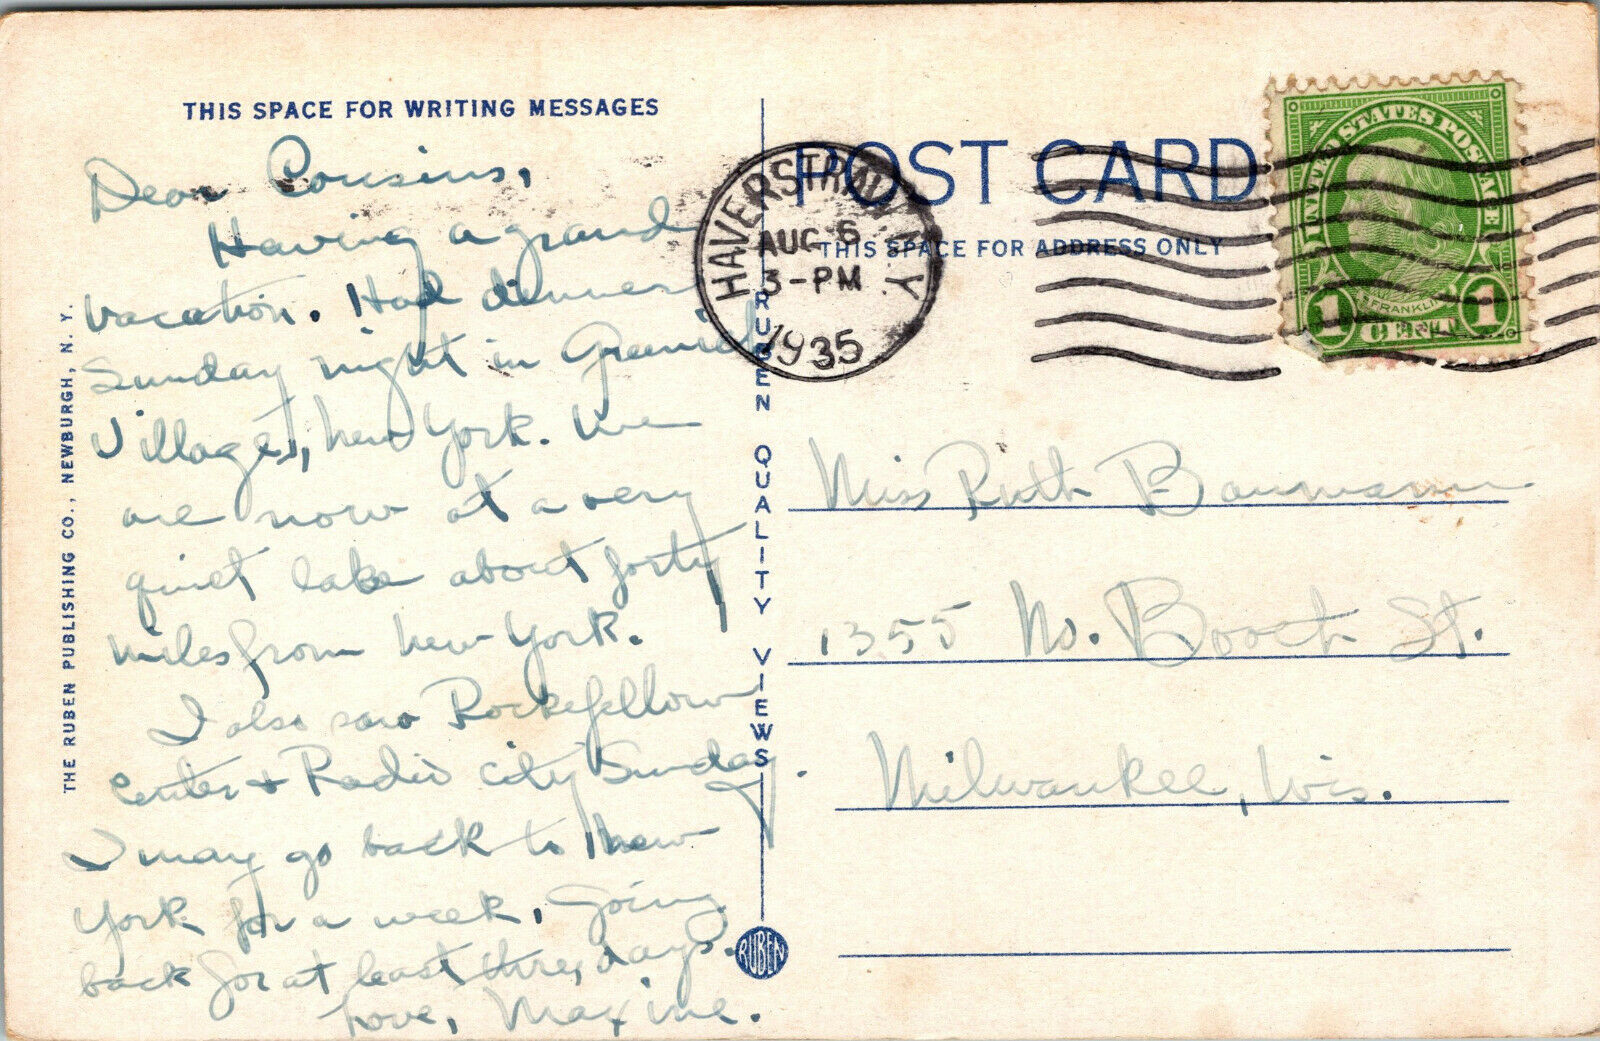 THIS SPACE FOR WRITING MESSAGES
Dear Cousins,
Having a grand
vacation. Had dinner
Sunday night in Greenwich
Village, New York. We
are now at a very
quiet lake about forty
miles from New York.
I also saw Rockefellow
Center + Radio City Sunday.
I may go back to New
York for a week. Going
back for at least three days.
Love, Maxine.
THE RUBEN PUBLISHING CO., NEWBURGH, N. Y.
RUBEN QUALITY VIEWS
RUBEN
POST CARD
THIS SPACE FOR ADDRESS ONLY
HAVERSTRAW N.Y.
AUG 6
3-PM
1935
UNITED STATES POSTAGE
FRANKLIN
1 CENT 1
Miss Ruth Baumann
1355 No. Booth St.
Milwaukee, Wis.